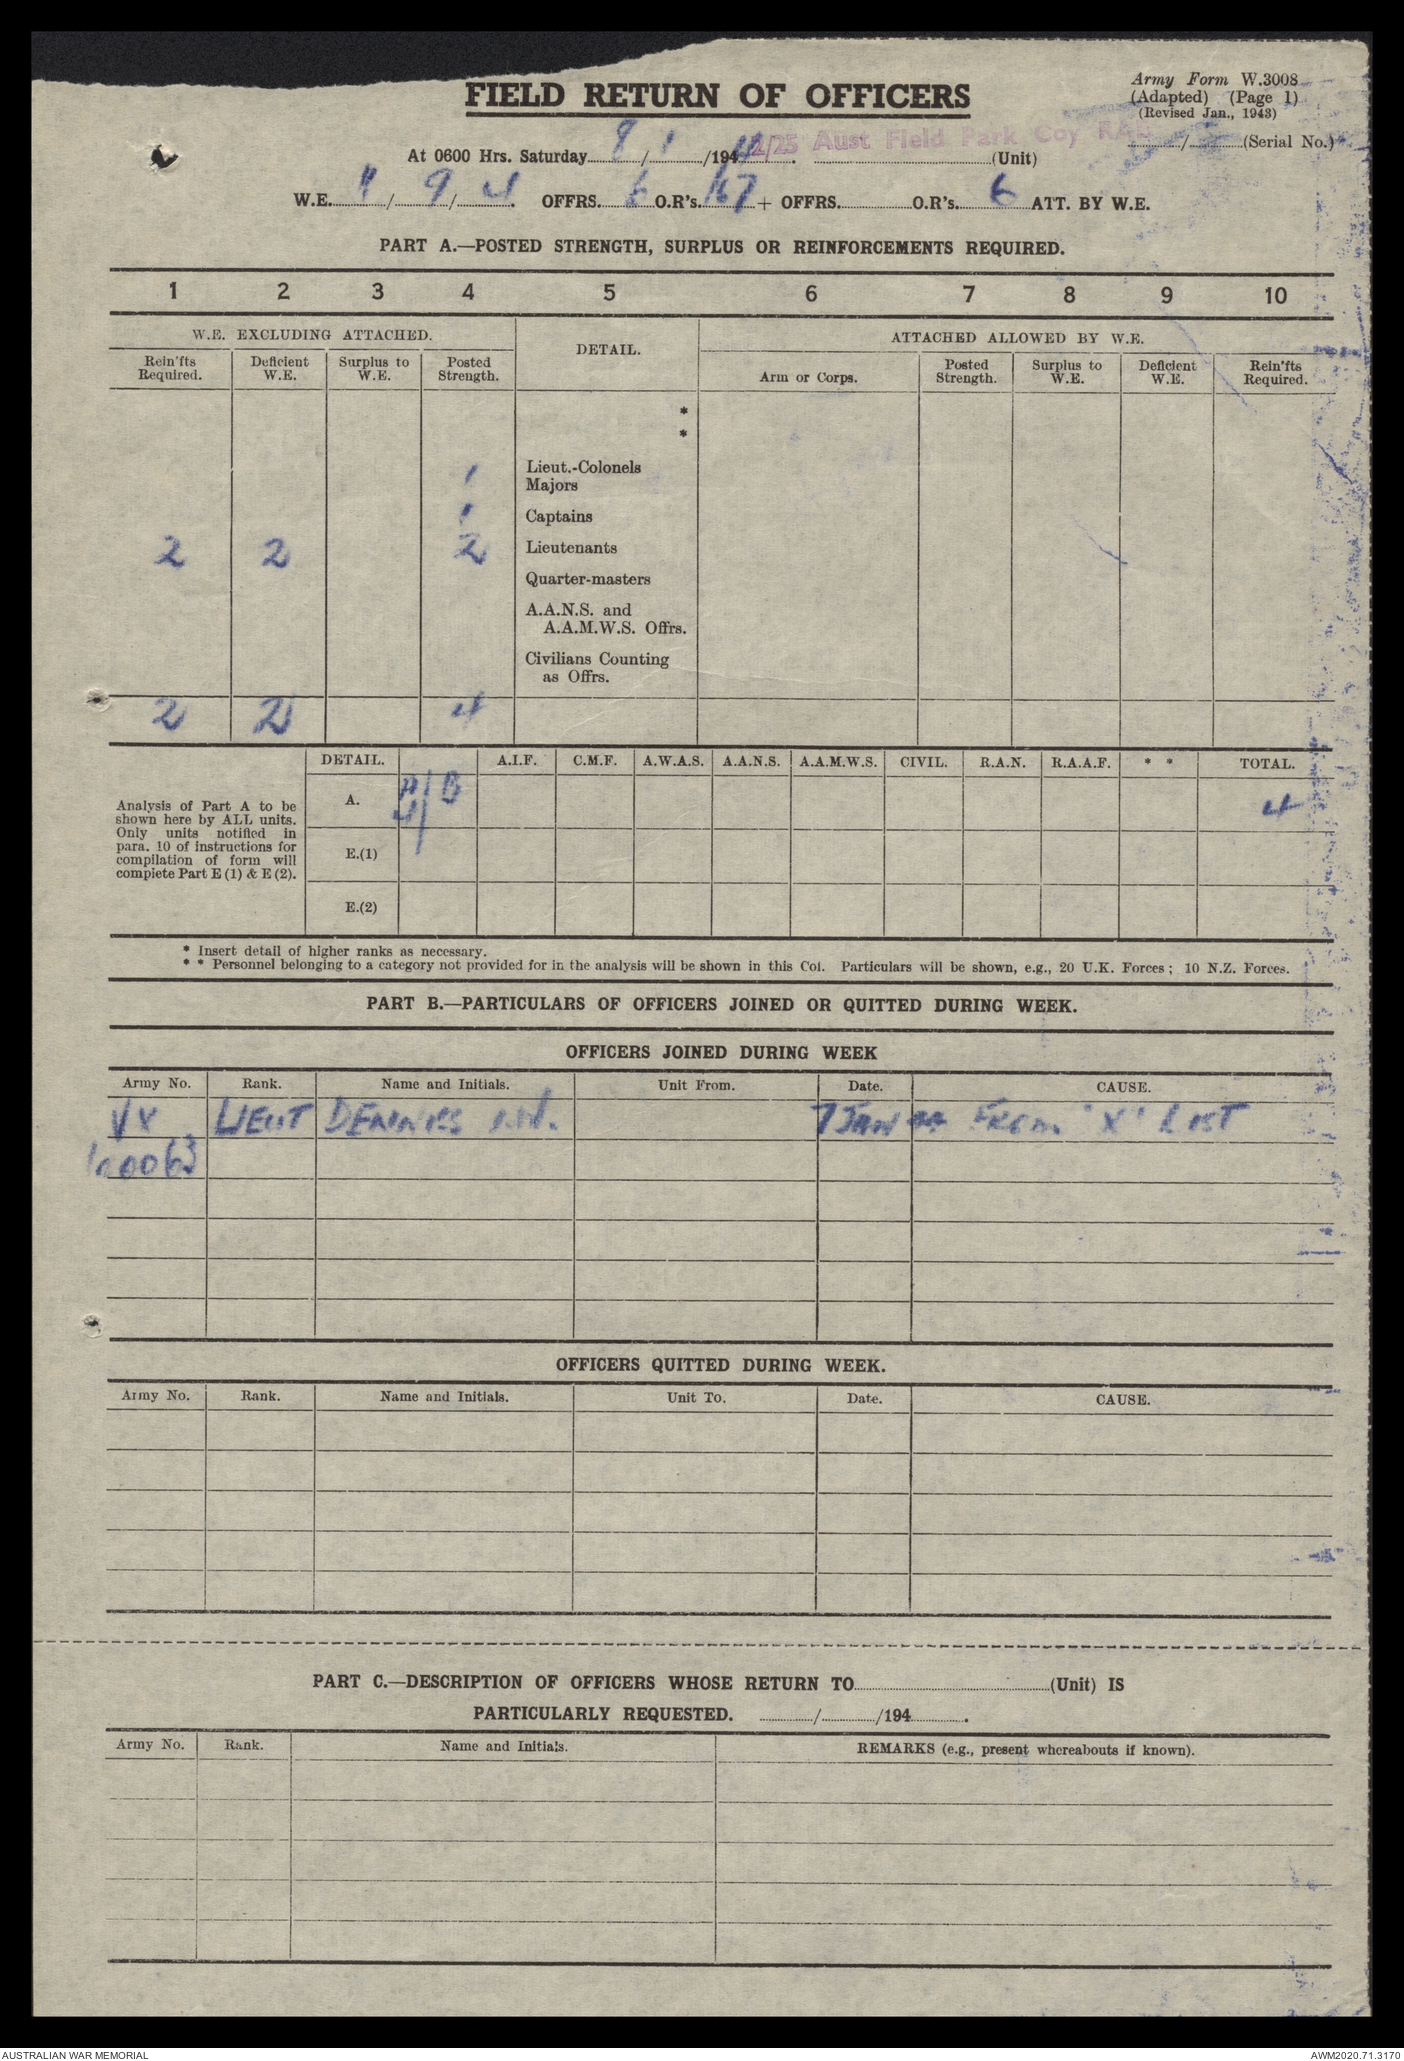 FIELD RETURN OF OFFICERS
Army Form W.3008
(Adapted) (Page 1)
(Revised Jan., 1943)
At 0600 Hrs. Saturday 8/1/1944. 2/25 Aust Field Park Coy RAE (Unit)
/ (Serial No.)
W.E. / 9 / 4. OFFRS. 6 O.R's. 167 + OFFRS. O.R's. 6 ATT. BY W.E.
PART A.—POSTED STRENGTH, SURPLUS OR REINFORCEMENTS REQUIRED.
1 2 3 4 5 6 7 8 9 10
W.E. EXCLUDING ATTACHED. DETAIL. ATTACHED ALLOWED BY W.E.
Rein'fts Required. Deficient W.E. Surplus to W.E. Posted Strength. Arm or Corps. Posted Strength. Surplus to W.E. Deficient W.E. Rein'fts Required.
*
*
Lieut.-Colonels
1 Majors
1 Captains
2 2 2 Lieutenants
Quarter-masters
A.A.N.S. and
A.A.M.W.S. Offrs.
Civilians Counting
as Offrs.
2 2 4
DETAIL. A.I.F. C.M.F. A.W.A.S. A.A.N.S. A.A.M.W.S. CIVIL. R.A.N. R.A.A.F. * * TOTAL.
A. A/B 4 4
E.(1)
E.(2)
Analysis of Part A to be
shown here by ALL units.
Only units notified in
para. 10 of instructions for
compilation of form will
complete Part E (1) & E (2).
* Insert detail of higher ranks as necessary.
* * Personnel belonging to a category not provided for in the analysis will be shown in this Col. Particulars will be shown, e.g., 20 U.K. Forces; 10 N.Z. Forces.
PART B.—PARTICULARS OF OFFICERS JOINED OR QUITTED DURING WEEK.
OFFICERS JOINED DURING WEEK
Army No. Rank. Name and Initials. Unit From. Date. CAUSE.
VX LIEUT DENNIES 7 JAN 44 FROM 'X' LIST
100063
OFFICERS QUITTED DURING WEEK.
Army No. Rank. Name and Initials. Unit To. Date. CAUSE.
PART C.—DESCRIPTION OF OFFICERS WHOSE RETURN TO (Unit) IS
PARTICULARLY REQUESTED. / /194 .
Army No. Rank. Name and Initials. REMARKS (e.g., present whereabouts if known).
AUSTRALIAN WAR MEMORIAL
AWM2020.71.3170